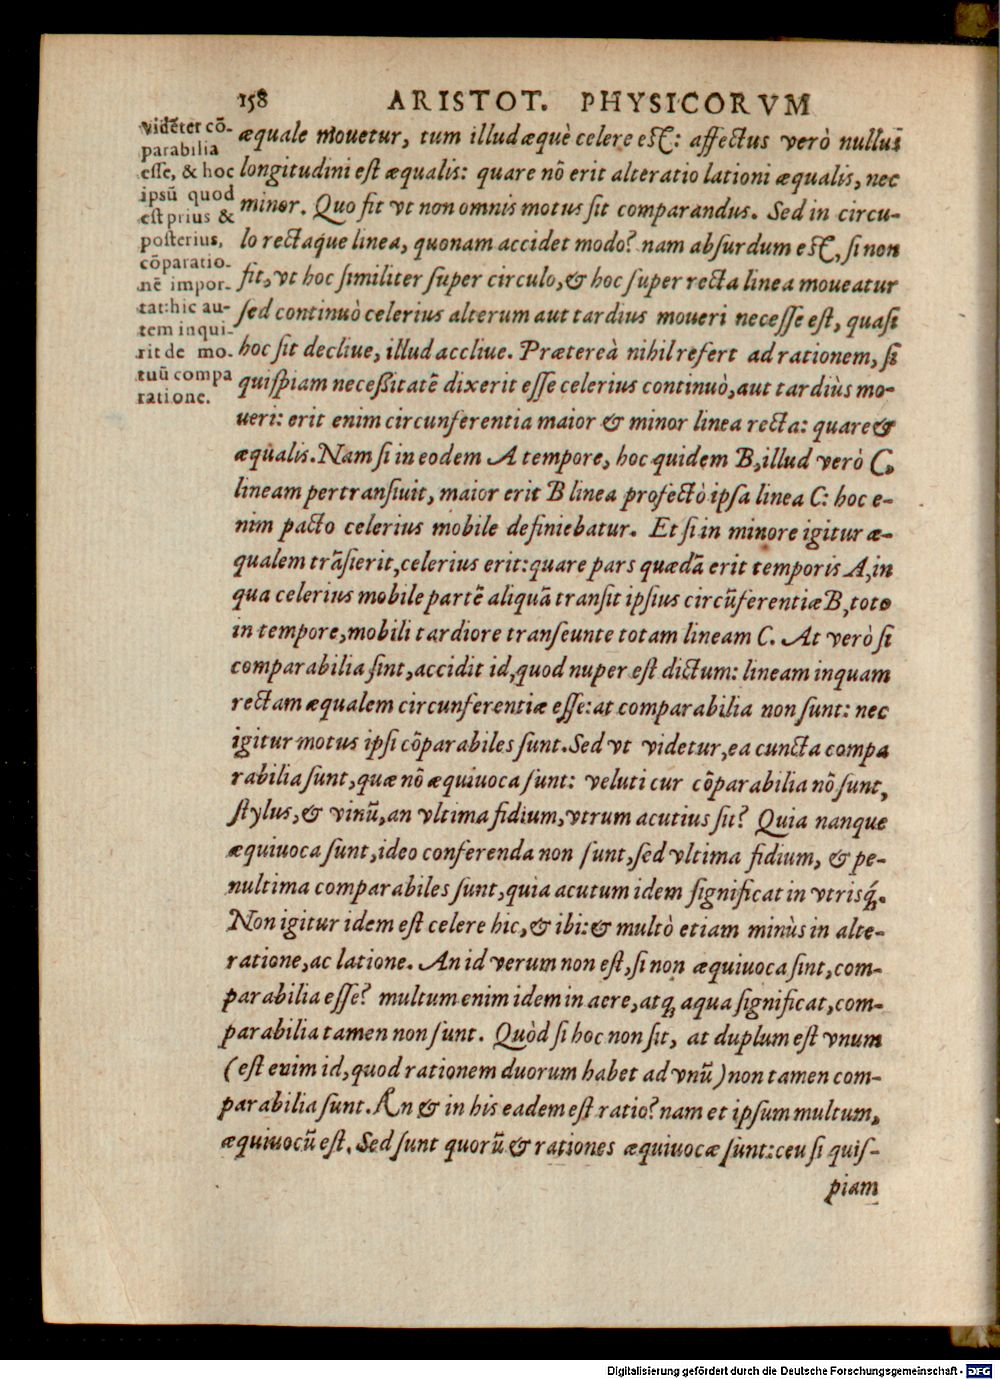 158 ARISTOT. PHYSICORVM
vidẽter cõ-
parabilia
esse, & hoc
ipsũ quod
est prius &
posterius,
cõparatio-
nẽ impor-
tat: hic au-
tem inqui-
rit de mo-
tuũ compa
ratione.
æquale mouetur, tum illud æquè celere est: affectus verò nullus
longitudini est æqualis: quare nõ erit alteratio lationi æqualis, nec
minor. Quo fit vt non omnis motus sit comparandus. Sed in circu-
lo rectaque linea, quonam accidet modo? nam absurdum est, si non
fit, vt hoc similiter super circulo, & hoc super recta linea moueatur
sed continuò celerius alterum aut tardius moueri necesse est, quasi
hoc sit decliue, illud accliue. Prætereà nihil refert ad rationem, si
quispiam necessitatẽ dixerit esse celerius continuò, aut tardiùs mo-
ueri: erit enim circunferentia maior & minor linea recta: quare &
æqualis. Nam si in eodem A tempore, hoc quidem B, illud verò C,
lineam pertransiuit, maior erit B linea profectò ipsa linea C: hoc e-
nim pacto celerius mobile definiebatur. Et si in minore igitur æ-
qualem trãsierit, celerius erit: quare pars quædã erit temporis A, in
qua celerius mobile partẽ aliquã transit ipsius circũferentiæ B, toto
in tempore, mobili tardiore transeunte totam lineam C. At verò si
comparabilia sint, accidit id, quod nuper est dictum: lineam inquam
rectam æqualem circunferentiæ esse: at comparabilia non sunt: nec
igitur motus ipsi cõparabiles sunt. Sed vt videtur, ea cuncta compa
rabilia sunt, quæ nõ æquiuoca sunt: veluti cur cõparabilia nõ sunt,
stylus, & vinũ, an vltima fidium, vtrum acutius sit? Quia nanque
æquiuoca sunt, ideo conferenda non sunt, sed vltima fidium, & pe-
nultima comparabiles sunt, quia acutum idem significat in vtrisq́.
Non igitur idem est celere hic, & ibi: & multò etiam minùs in alte-
ratione, ac latione. An id verum non est, si non æquiuoca sint, com-
parabilia esse? multum enim idem in aere, atq; aqua significat, com-
parabilia tamen non sunt. Quòd si hoc non sit, at duplum est vnum
(est enim id, quod rationem duorum habet ad vnũ) non tamen com-
parabilia sunt. An & in his eadem est ratio? nam et ipsum multum,
æquiuocũ est. Sed sunt quorũ & rationes æquiuocæ sunt: ceu si quis-
piam
Digitalisierung gefördert durch die Deutsche Forschungsgemeinschaft - DFG